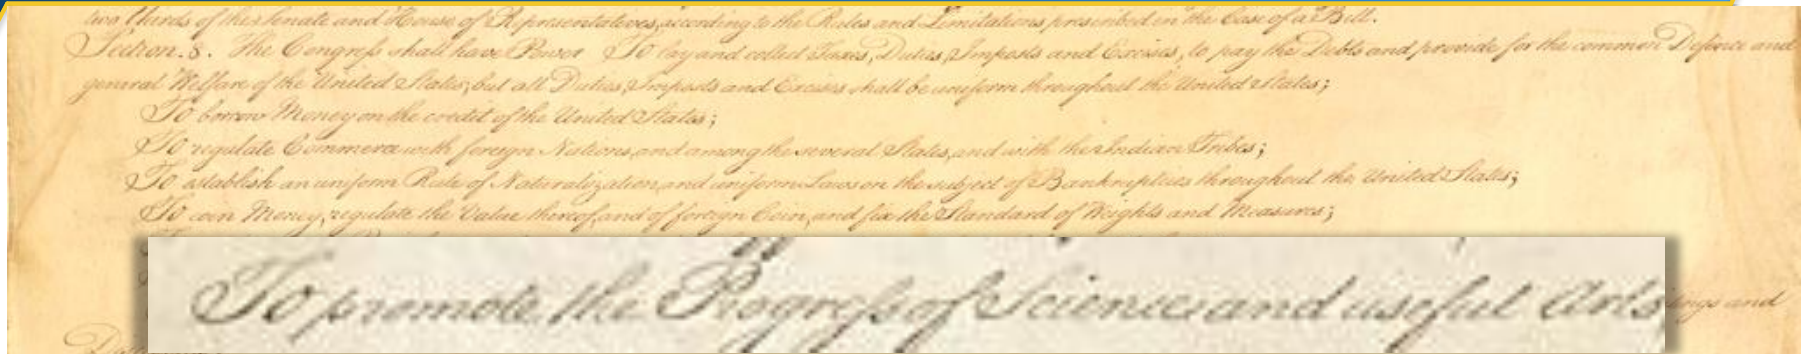 two thirds of the Senate and House of Representatives, according to the Rules and Limitations prescribed in the Case of a Bill.
Section. 8. The Congress shall have Power To lay and collect Taxes, Duties, Imposts and Excises, to pay the Debts and provide for the common Defence and
general Welfare of the United States; but all Duties, Imposts and Excises shall be uniform throughout the United States;
To borrow Money on the credit of the United States;
To regulate Commerce with foreign Nations, and among the several States, and with the Indian Tribes;
To establish an uniform Rule of Naturalization, and uniform Laws on the subject of Bankruptcies throughout the United States;
To coin Money, regulate the Value thereof, and of foreign Coin, and fix the Standard of Weights and Measures;
To promote the Progress of Science and useful Arts
and